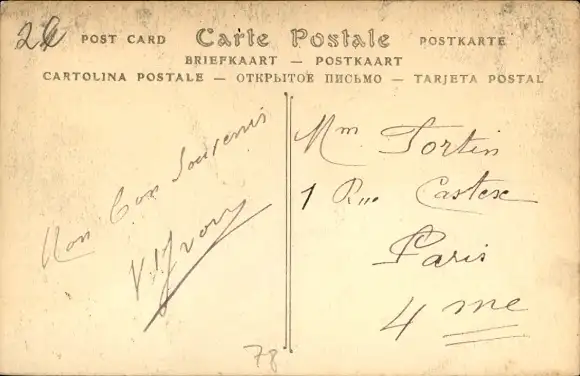 22
POST CARD Carte Postale POSTKARTE
BRIEFKAART — POSTKAART
CARTOLINA POSTALE — ОТКРЫТОЕ ПИСЬМО — TARJETA POSTAL
Mon bon Souvenir
Mm Tortin
1 Rue Castex
Paris
4 me
78